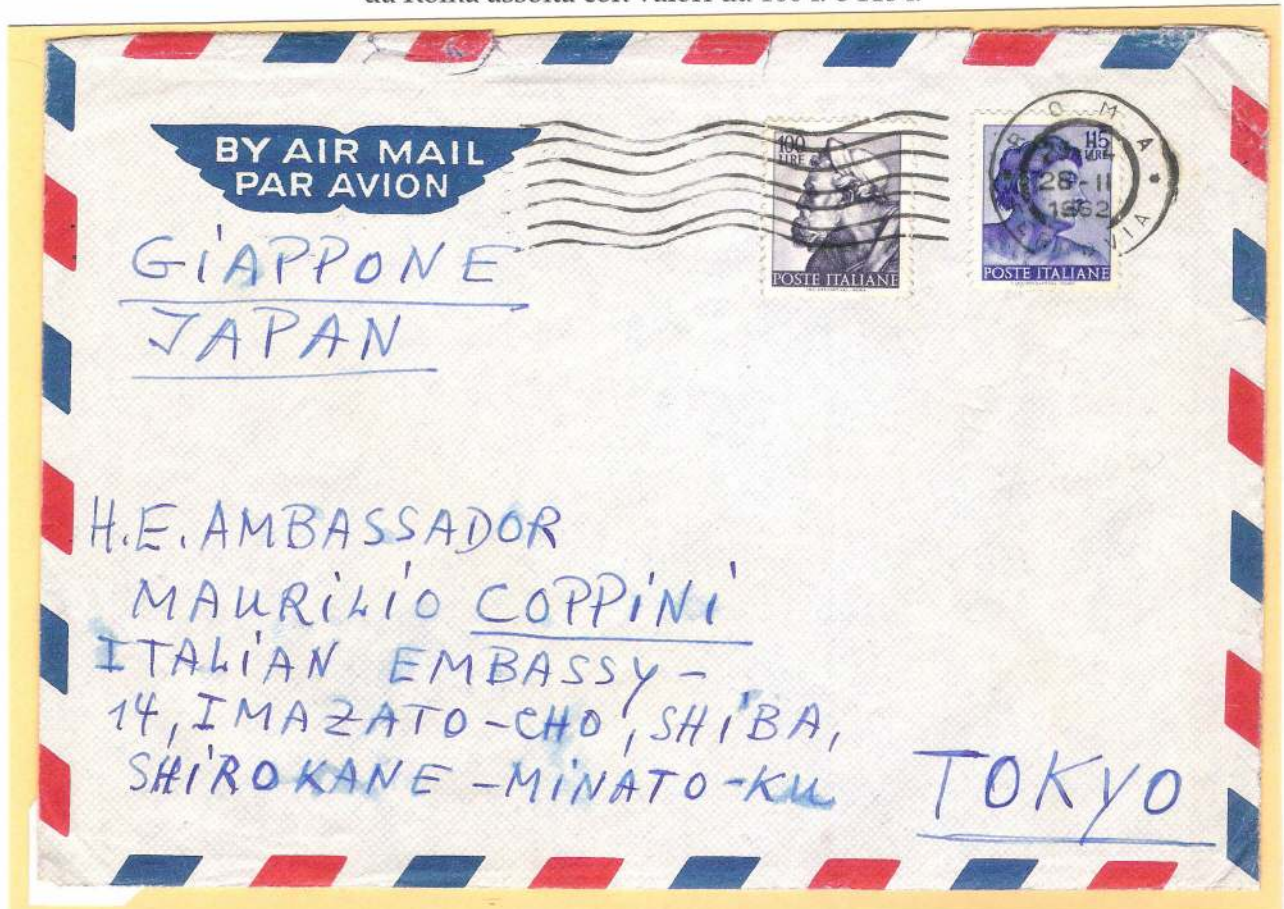 BY AIR MAIL
PAR AVION
GIAPPONE
JAPAN
100
LIRE
POSTE ITALIANE
115
LIRE
POSTE ITALIANE
ROMA
28-11
1962
H.E. AMBASSADOR
MAURILIO COPPINI
ITALIAN EMBASSY-
14, IMAZATO-CHO, SHIBA,
SHIROKANE-MINATO-KU
TOKYO